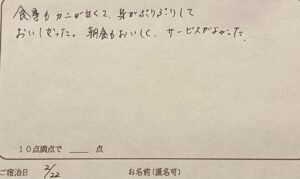 食事もカニが甘くて、身がぷりぷりして
おいしかった。朝食もおいしく、サービスがよかった
10点満点で ____ 点
ご宿泊日 2/22 お名前(匿名可)